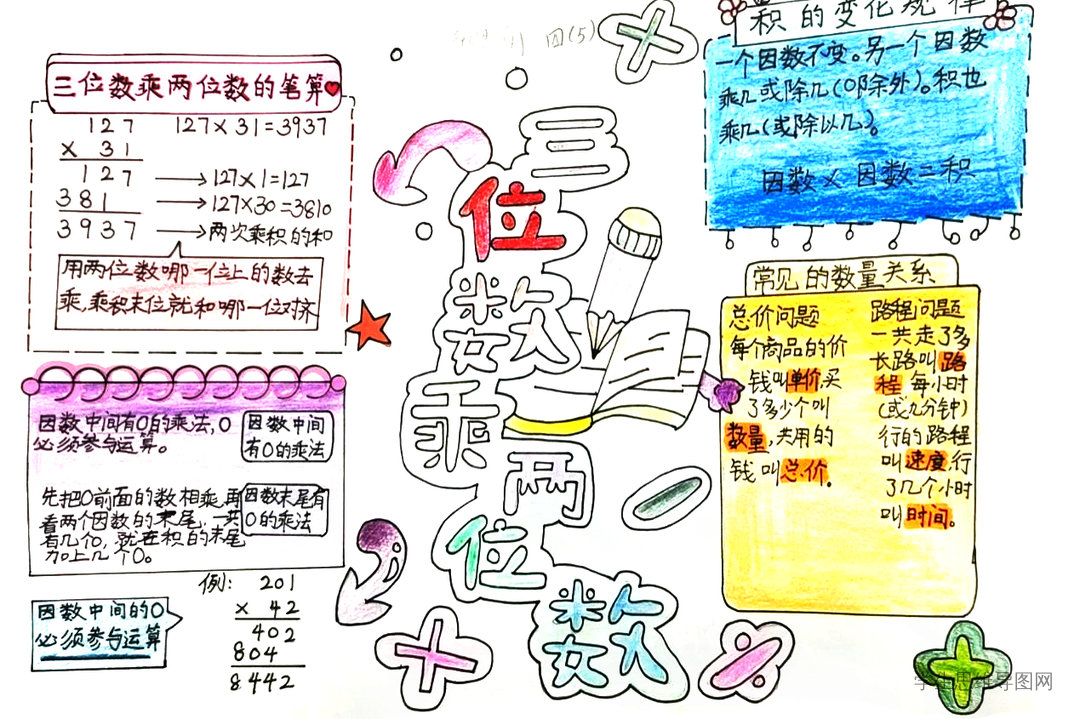 四(5)
三位数乘两位数的笔算
127 127×31=3937
× 31
127 →127×1=127
381 →127×30=3810
3937 →两次乘积的和
用两位数哪一位上的数去
乘,乘积末位就和哪一位对齐
因数中间有0的乘法,0
必须参与运算。
因数中间
有0的乘法
先把0前面的数相乘,再
看两个因数的末尾,一共
有几个0,就在积的末尾
加上几个0。
因数末尾有
0的乘法
因数中间的0
必须参与运算
例: 201
× 42
402
804
8442
三
位
数
乘
两
位
数
积的变化规律
一个因数不变。另一个因数
乘几或除几(0除外)。积也
乘几(或除以几)。
因数×因数=积
常见的数量关系
总价问题
每个商品的价
钱叫单价,买
了多少个叫
数量,共用的
钱叫总价。
路程问题
一共走了多
长路叫路
程,每小时
(或几分钟)
行的路程
叫速度,行
了几个小时
叫时间。
思维导图网